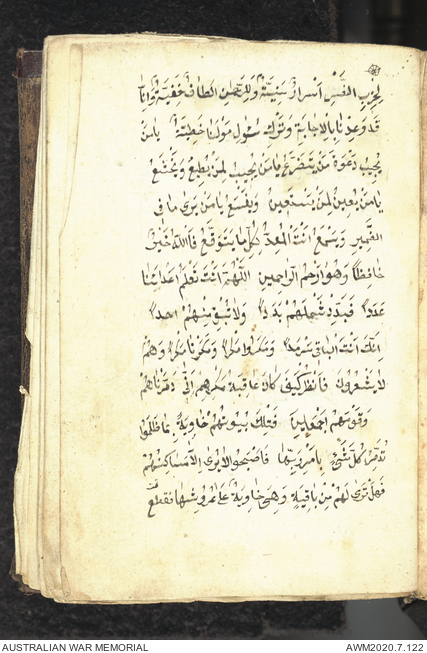 لحزب النفس اسرار سنية وللرحمن الطاف خفية
قد وعدنا بالاجابة وترك سؤل مولنا خطية يا من
يجيب دعوة من يتضرع يا من يجيب لمن يطيع ويخشع
يا من يعين لمن يستعين ويقسع يا من يرى ما في
الضمير ويسمع انت المعد لكل ما يتوقع فالله خير
حافظا وهو ارحم الراحمين اللهم انت تعلم اعدائنا
عددا فبدد شملهم بددا ولا تبق منهم احدا
انك انت الباقي سرمدا ومكروا مكرا ومكرنا مكرا وهم
لا يشعرون فانظر كيف كان عاقبة مكرهم انا دمرناهم
وقومهم اجمعين فتلك بيوتهم خاوية بما ظلموا
تدمر كل شئ بامر ربها فاصبحوا لا يرى الا مساكنهم
فهل ترى لهم من باقية وهي خاوية على عروشها فقطع
AUSTRALIAN WAR MEMORIAL
AWM2020.7.122